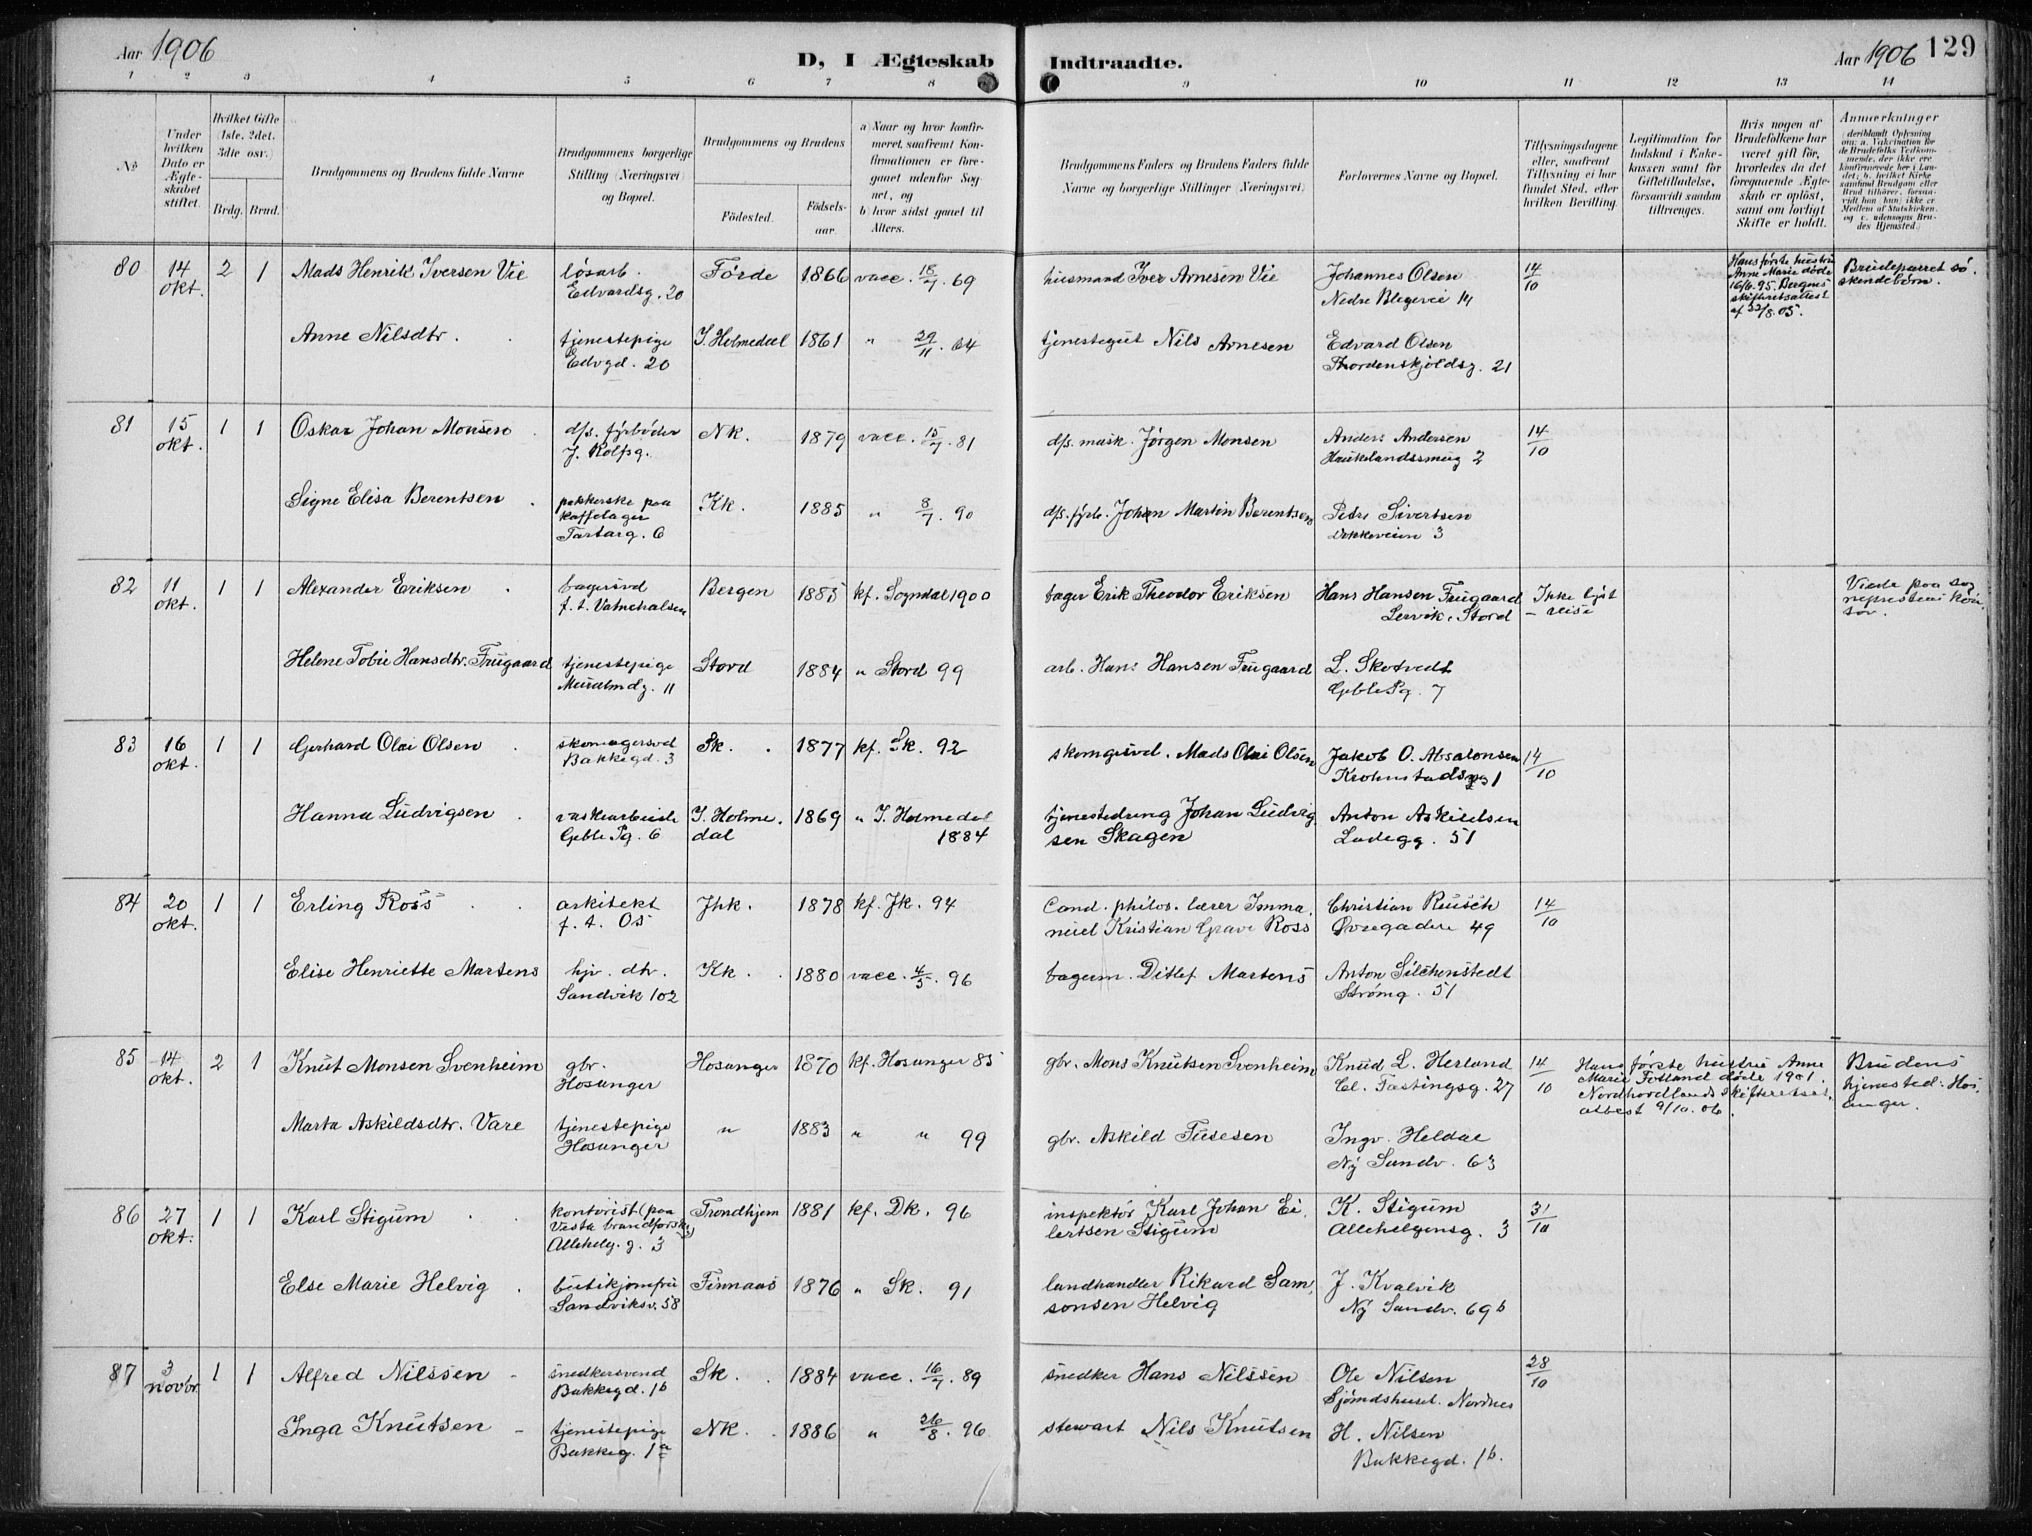 Aar 1906
D, I Ægteskab Indtraadte.
Aar 1906 129
1 2 3 4 5 6 7 8 9 10 11 12 13 14
No
Under hvilken Dato er Ægteskabet stiftet.
Hvilket Gifte (1ste, 2det, 3die osv.)
Brdg. Brud.
Brudgommens og Brudens fulde Navne
Brudgommens borgerlige Stilling (Næringsvei) og Bopæl.
Brudgommens og Brudens
Födested.
Födselsaar.
a) Naar og hvor konfirmeret, saafremt Konfirmationen er foregaaet udenfor Sognet, og
b) hvor sidst gaaet til Alters.
Brudgommens Faders og Brudens Faders fulde Navne og borgerlige Stillinger (Næringsvei)
Forlovernes Navne og Bopæl.
Tillysningsdagene eller, saafremt Tillysning ei har fundet Sted, efter hvilken Bevilling.
Legitimation for Indskud i Enkekassen samt for Giftetilladelse, forsaavidt saadan tiltrænges.
Hvis nogen af Brudefolkene har været gift för, hvorledes da det foregaaende Ægteskab er oplöst, samt om lovligt Skifte er holdt.
Anmærkninger
(deriblandt Oplysning om: a. Vakcination for de Brudefolks Vedkommende, der ikke ere konfirmerede her i Landet; b. hvilket Kirkesamfund Brudgom eller Brud tilhörer, forsaavidt han (hun) ikke er Medlem af Statskirken, og c. udensogns Brudes Hjemsted.)
80 14 okt. 2 1 Mads Henrik Iversen Vie
løsarb. Edvardsg. 20
Førde 1866 vacc. 18/7 69
husmand Iver Arnesen Vie
Johannes Olsen
Nedre Blegevei 14
14/10
Hans første hustru
Anne Marie døde
16/6. 95. Bergens
skifteretsattest
af 22/8. 05.
Brudeparret sø.
skendebørn.
Anne Nilsdtr.
tjenestepige
Edvgd. 20
I. Holmedal 1861 " 29/11. 64
tjenestegut Nils Arnesen
Edvard Olsen
Thordenskjoldsg. 21
81 15 okt. 1 1 Oskar Johan Monsen
d/s. fyrbøder
J. Rolfsg.
NK. 1879 vacc. 15/7. 81
d/s. mask. Jørgen Monsen
Anders Andersen
Haukelandssmug 2
14/10
Signe Elisa Berentsen
pakkerske paa
kaffelager
Tartarg. 6
Kk. 1885 " 8/7. 90
d/s. fyrb. Johan Martin Berentsen
Peder Sivertsen
Dokkeveien 3
82 11 okt. 1 1 Alexander Eriksen
bagersvd
f. t. Vatnehalsen
Bergen 1883 kf. Sogndal 1900
bager Erik Theodor Eriksen
Hans Hansen Frugaard
Lervik, Stord
Ikke lyst
– reise
Viede paa sog
neprestens kon,
tor.
Helene Tobie Hansdtr. Frugaard
tjenestepige
Muralmdg. 11
Stord 1884 " Stord 99
arb. Hans Hansen Frugaard
L. Skotvedt
Geble Pg. 7
83 16 okt. 1 1 Gerhard Olai Olsen
skomagersvd
Bakkegd. 3
Sk. 1877 kf. Sk. 92
skomgsvd. Mads Olai Olsen
Jakob O. Absalonsen
Krohnstadsg 1
14/10
Hanna Ludvigsen
vaskearbeide
Geble Pg. 6
I. Holme.
dal
1869 " I. Holmedal
1884
tjenestedreng Johan Ludvig
sen Skagen
Anton Askildsen
Ladegg. 51
84 20 okt. 1 1 Erling Ross
arkitekt
f. t. Os
Jhk. 1878 kf. Jk. 94
Cand. philos. lærer Imma,
nuel Kristian Grave Ross
Christian Reusch
Øvregaden 49
14/10
Elise Henriette Martens
hjv. dtr.
Sandvik 102
Kk. 1880 vacc. 4/5. 96
bagerm. Ditlef Martens
Anton Silchenstedt
Strømg. 51
85 14 okt. 2 1 Knut Monsen Svenheim
gbr.
Hosanger
Hosanger 1870 kf. Hosanger 85
gbr. Mons Knutsen Svenheim
Knud L. Herland
Cl. Fastingsg. 27
14/10
Hans første hustru Anne
Marie Totland døde 1901.
Nordhordlands skifteretsat,
attest 9/10. 06.
Brudens
hjemsted: Hos,
anger.
Marta Askildsdtr. Vare
tjenestepige
Hosanger
" 1883 " " 99
gbr. Askild Tufesen
Ingv. Heldal
Ny Sandv. 63
86 27 okt. 1 1 Karl Stigum
kontorist (paa
Vesta brandforsk.)
Allehelg. g. 3
Trondhjem 1881 kf. Dk. 96
inspektør Karl Johan Ei,
lertsen Stigum
K. Stigum
Allehelgensg. 3
31/10
Else Marie Helvig
butikjomfru
Sandviksv. 58
Finnaas 1876 " Sk. 91
landhandler Rikard Sam,
sonsen Helvig
J. Kvalvik
Ny Sandv. 69 b
87 3 novbr 1 1 Alfred Nilssen
snedkersvend
Bakkegd. 1b
Sk. 1884 vacc. 16/7. 89
snedker Hans Nilssen
Ole Nilsen
Sjømdshuset. Nordnes
28/10
Inga Knutsen
tjenestepige
Bakkeg. 1a
NK. 1886 " 26/8. 96
stewart Nils Knutsen
H. Nilsen
Bakkegd. 1b.